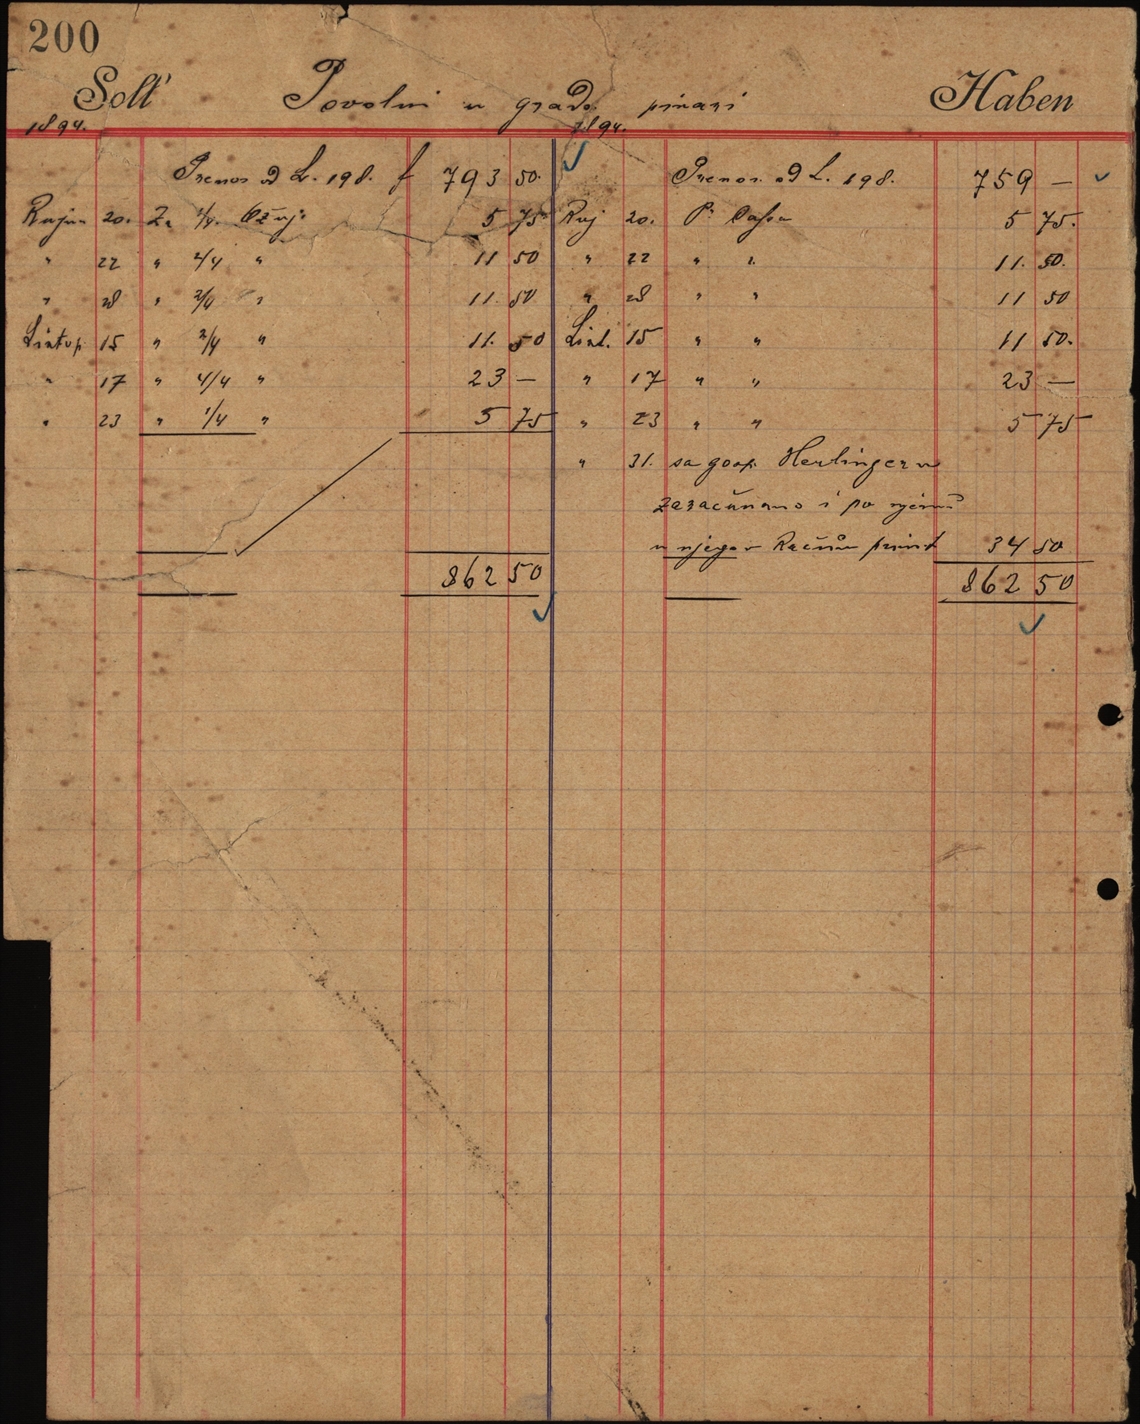 200
Soll Povolni u gradu pivari Haben
1894. 1894.
Prenos od L. 198. f 793 50. Prenos od L. 198. 759 —
Rujna 20. Za 1/4. Ožuj: 5 75 Ruj 20. Pr Cassa 5 75.
" 22 " 2/4 " 11 50 " 22 " " 11. 50.
" 28 " 2/4 " 11. 50 " 28 " " 11 50
Listop. 15 " 2/4 " 11. 50 List. 15 " " 11 50.
" 17 " 4/4 " 23 — " 17 " " 23 —
" 23 " 1/4 " 5 75 " 23 " " 5 75
" 31. sa gosp. Herlinger u
zaračunano i po njemu
u njegov Račun primit 34 50
862 50 862 50